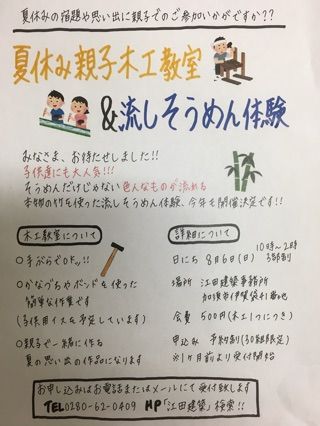 夏休みの宿題や思い出に親子でのご参加いかがですか??
夏休み親子木工教室
&流しそうめん体験
みなさま、お待たせしました!!
子供達にも大人気!!!
そうめんだけじゃない色んなものが流れる
本物の竹を使った流しそうめん体験、今年も開催決定です!!
木工教室について
○手ぶらでOKッ!!
○かなづちやボンドを使った
簡単な作業です
(子供用イスを予定しています)
○親子で一緒に作る
夏の思い出の作品になります
詳細について
日にち 8月6日(日) 10時~2時
場所 江田建築事務所
加須市伊賀袋41番地
会費 500円(木工1つにつき)
申込み 予約制(30組限定)
※1ヶ月前より受付開始
お申し込みはお電話またはメールにて受付致します
TEL0280-62-0409 HP「江田建築」検索!!